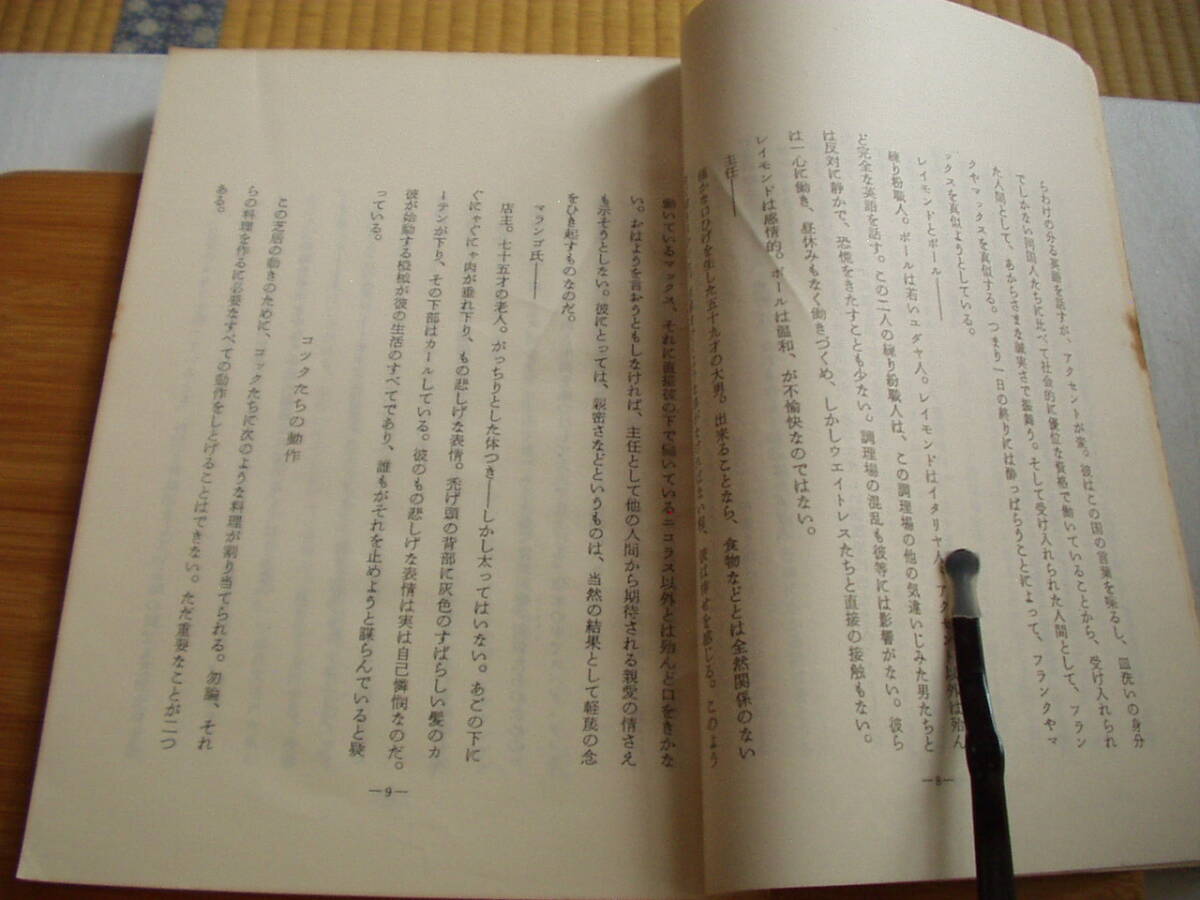 らわけの分る英語を話すが、アクセントが変。彼はこの国の言葉を喋るし、皿洗いの身分
でしかない同国人たちに比べて社会的に優位な資格で働いていることから、受け入れられ
た人間として、あからさまな誠実さで振舞う。そして受け入れられた人間として、フラン
クやマックスを真似する。つまり一日の終りには酔っぱらうことによって、フランクやマ
ックスを真似ようとしている。
レイモンドとポール――
練り粉職人。ポールは若いユダヤ人。レイモンドはイタリヤ人。アクセント以外は殆ん
ど完全な英語を話す。この二人の練り粉職人は、この調理場の他の気違いじみた男たちと
は反対に静かで、恐慌をきたすことも少ない。調理場の混乱も彼等には影響がない。彼ら
は一心に働き、昼休みもなく働きづくめ、しかしウエイトレスたちと直接の接触もない。
レイモンドは感情的。ポールは温和、が不愉快なのではない。
主任――
ひげを生した五十九才の大男。出来ることなら、食物などとは全然関係のない
彼は幸せを感じる。このよう
—8—
働いているマックス、それに直接彼の下で働いているニコラス以外とは殆んど口をきかな
い。おはようを言おうともしなければ、主任として他の人間から期待される親愛の情さえ
も示そうとしない。彼にとっては、親密さなどというものは、当然の結果として軽蔑の念
をひき起すものなのだ。
マランゴ氏――
店主。七十五才の老人。がっちりとした体つき――しかし太ってはいない。あごの下に
ぐにゃぐにゃ肉が垂れ下り、もの悲しげな表情。禿げ頭の背部に灰色のすばらしい髪のカ
ーテンが下り、その下部はカールしている。彼のもの悲しげな表情は実は自己憐憫なのだ。
彼が始動する機械が彼の生活のすべてであり、誰もがそれを止めようと謀らんでいると疑
っている。
コックたちの動作
この芝居の動きのために、コックたちに次のような料理が割り当てられる。勿論、それ
らの料理を作るに必要なすべての動作をしとげることはできない。ただ重要なことが二つ
ある。
—9—